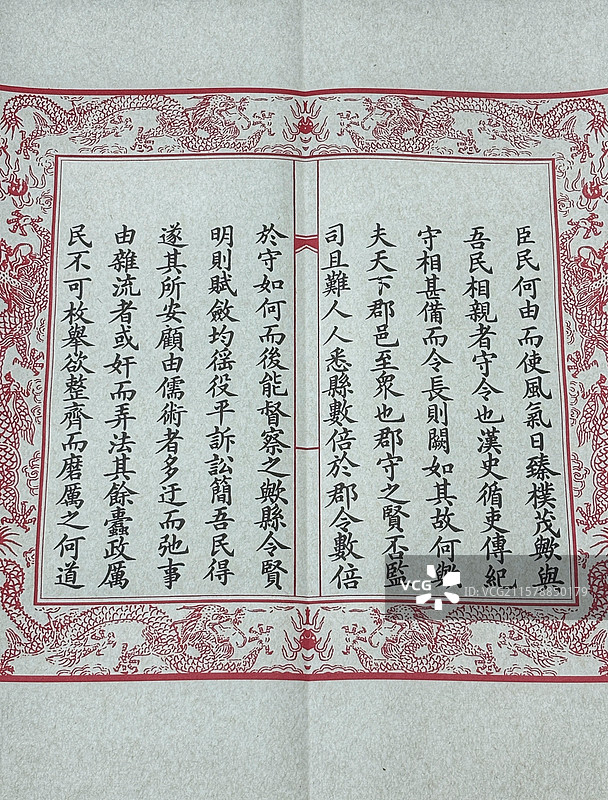 臣民何由而使風氣日臻樸茂歟與
吾民相親者守令也漢史循吏傳紀
守相甚備而令長則闕如其故何歟
夫天下郡邑至衆也郡守之賢否監
司且難人人悉縣數倍於郡令數倍
於守如何而後能督察之歟縣令賢
明則賦斂均徭役平訴訟簡吾民得
遂其所安顧由儒術者多迂而弛事
由雜流者或奸而弄法其餘蠹政厲
民不可枚舉欲整齊而磨厲之何道
VCG
VCG.COM
ID:VCG211578850179